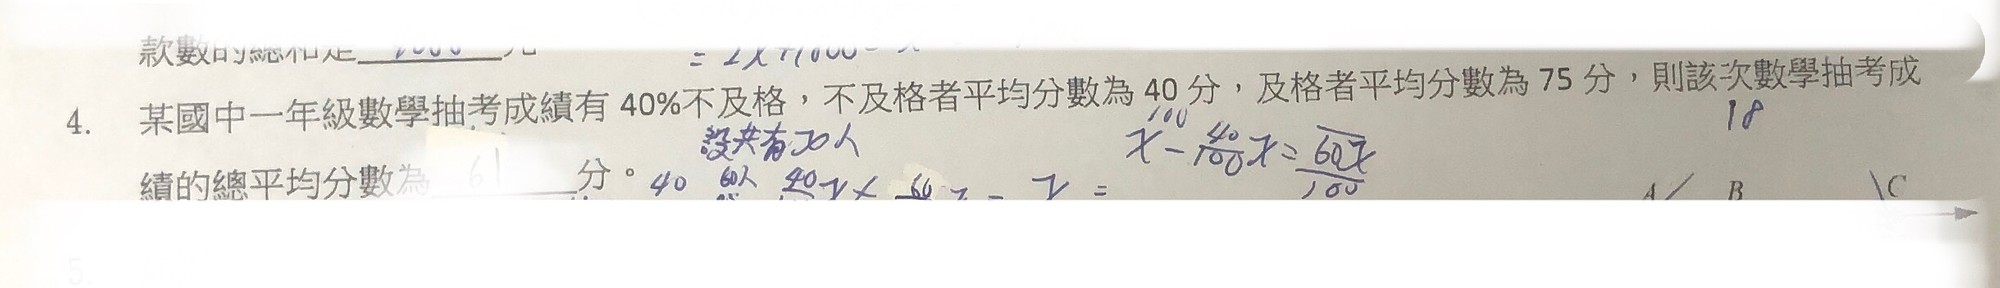 款數的總和是
4. 某國中一年級數學抽考成績有 40%不及格，不及格者平均分數為 40 分，及格者平均分數為 75 分，則該次數學抽考成
18
100
設共有x人
x-40/100x=60x/100
績的總平均分數為 61 分。
40 60人
A B C
5.